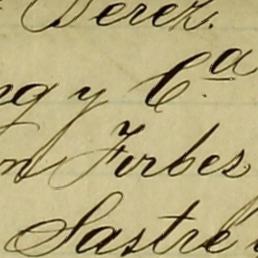 Perez.
ng y Cª
n Forbes
Sastre